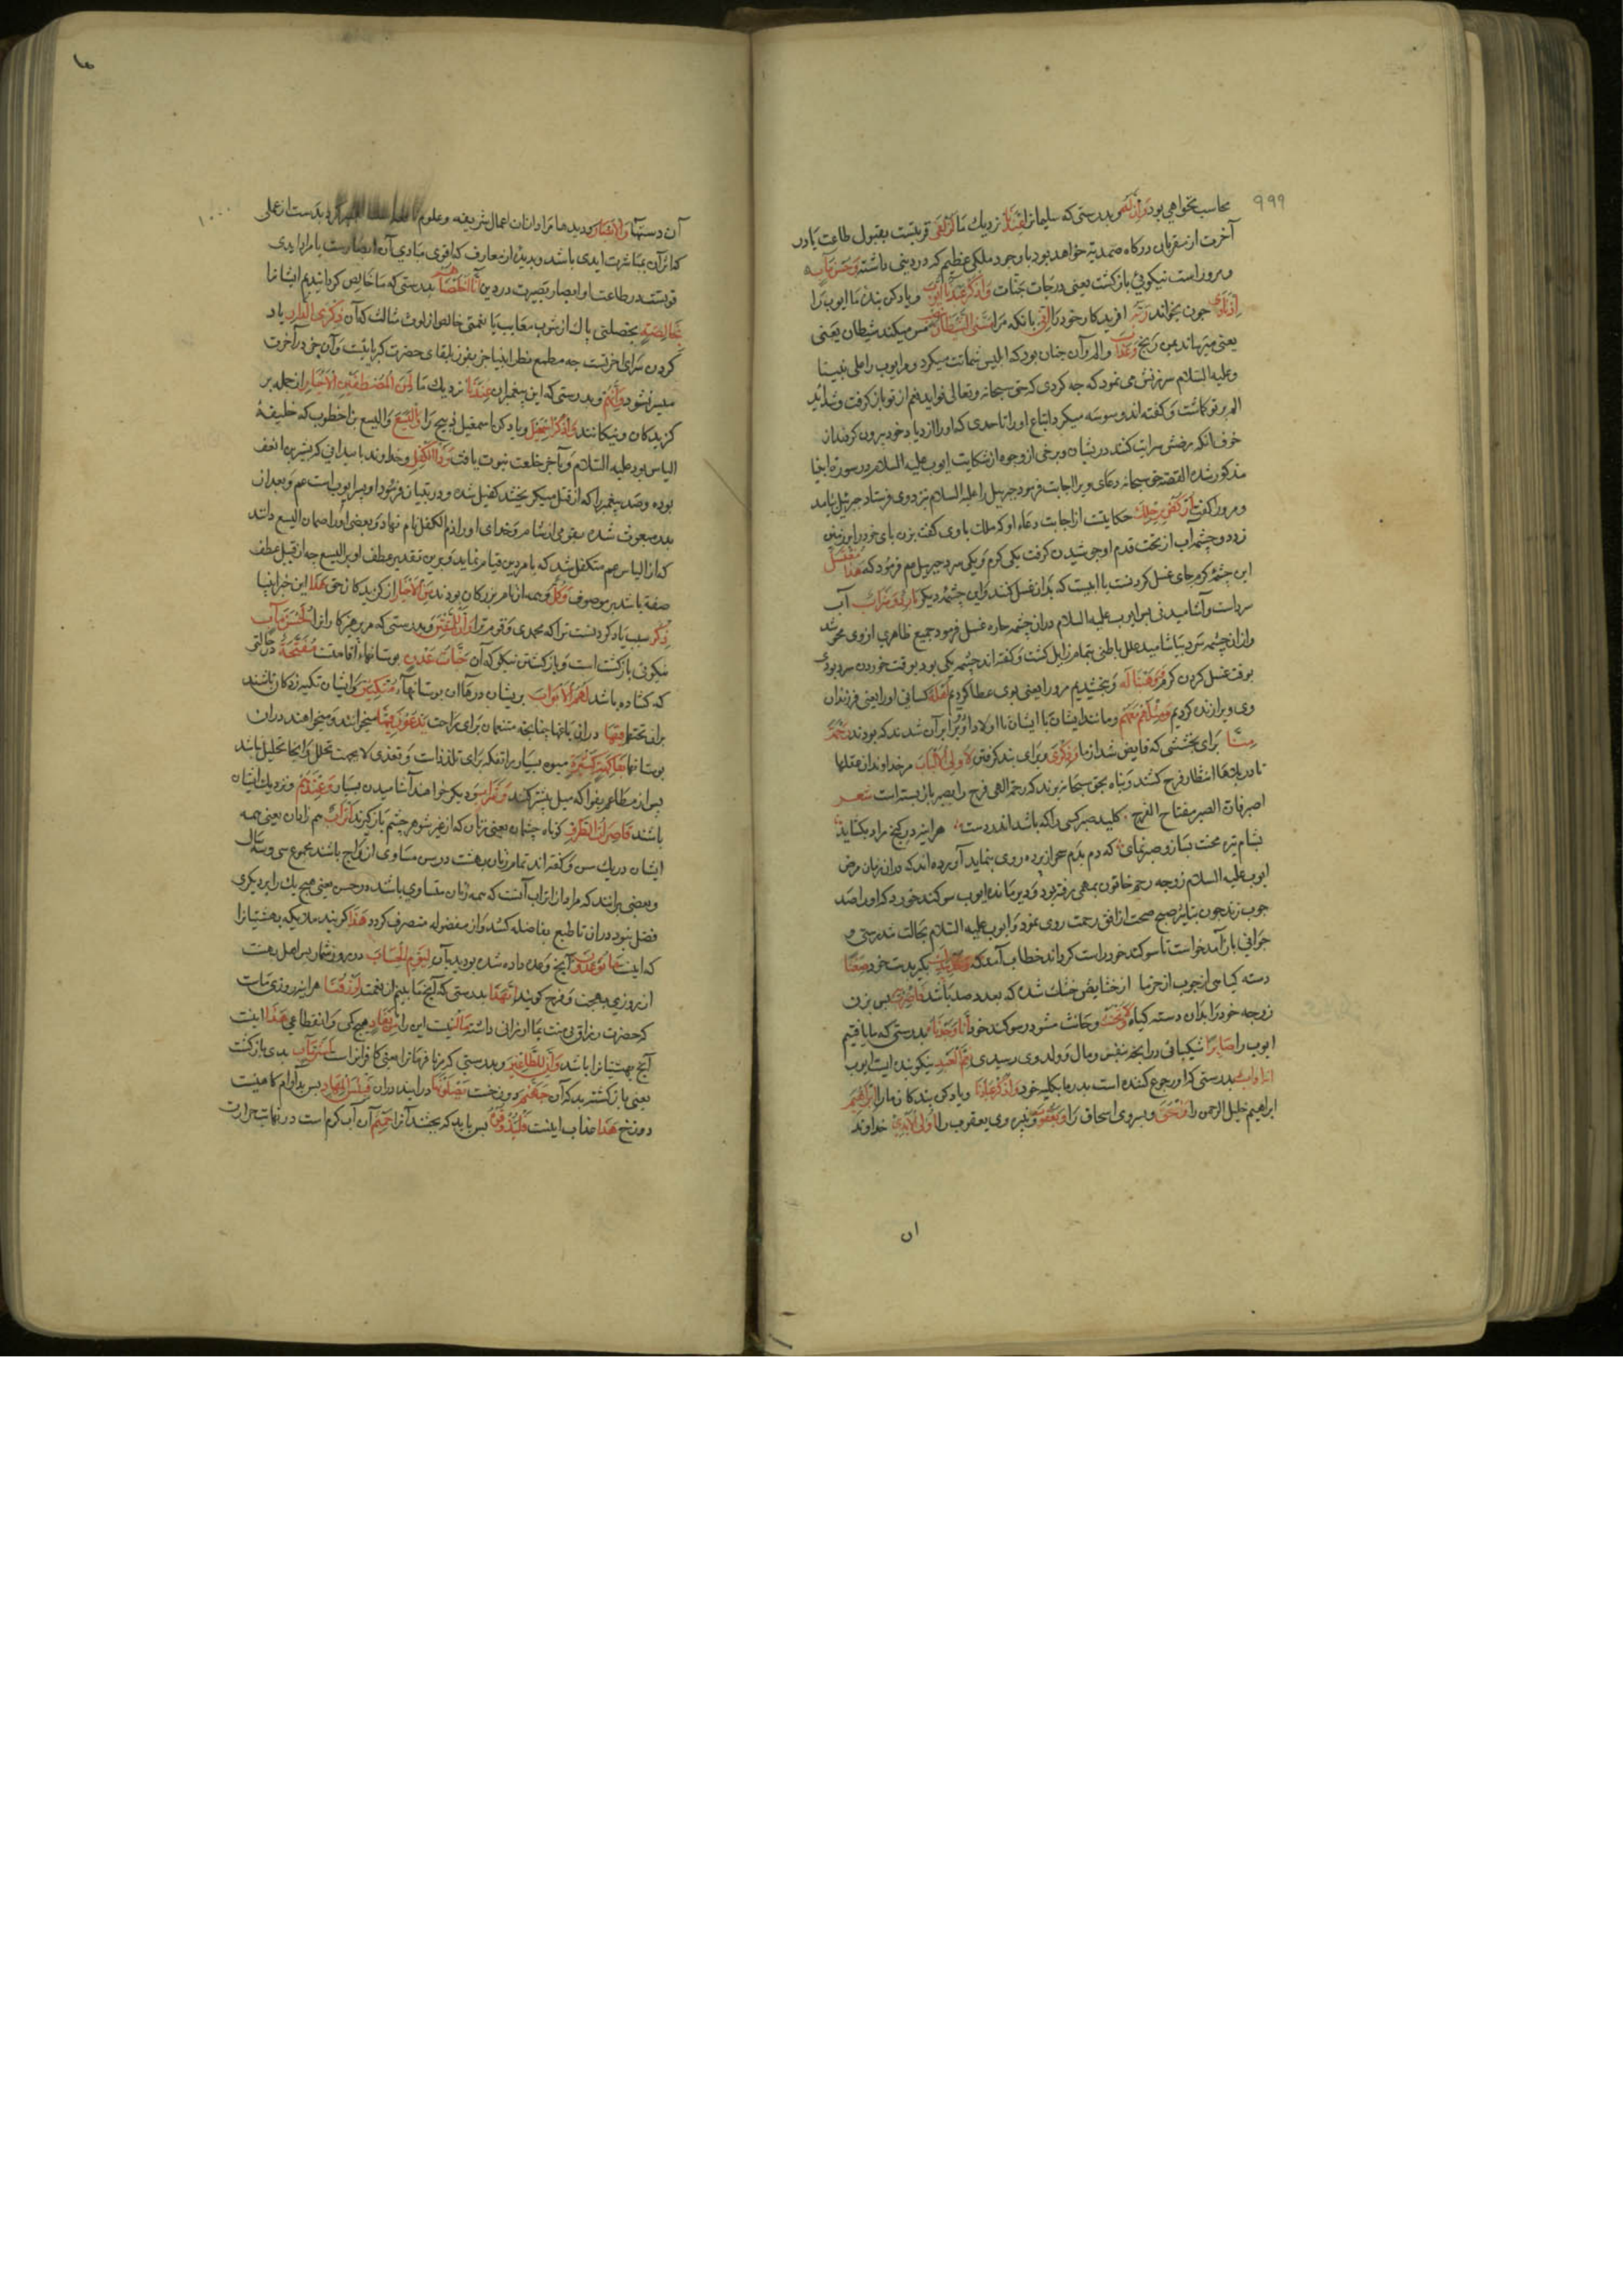 ۹۹۹
محاسب نخواهی بود وَاِنَّ لَهُ و بدرستی که سلیمانرا عِنْدَنَا نزدیك ما لَزُلْفٰی قربتست بقبول طاعت یا در
آخرت از مقربان درکاه صمدیة خواهد بود با وجود ملکی عظیم که در دینی داشته وَحُسْنَ مَآبٍ
و مروراست نیکویئ بازکشت یعنی درجات جنات وَاذْکُرْ عَبْدَنَا اَیُّوبَ و یاد کن بندۀ ما ایوب را
اِذْ نَادٰی چون بخواند رَبَّهُ آفریدکار خود را اَنِّی بانکه مرا مَسَّنِیَ الشَّیْطَانُ مس میکند شیطان یعنی
یعنی میرساند بمن رنج وَعَذَابٍ و الم و آن چنان بود که ابلیس شماتت میکرد و مر ایوب را علی نبینا
وعلیه السلام سرزنش می نمود که چه کردی که حق سبحانه وتعالی فواید نعم از تو باز کرفت و شداید
الم بر تو کماشت و کفته اند وسوسه میکرد اتباع او را تا حدی که او را از دیار خود بیرون کردند از
خوف انکه مرضش سرایت کند دریشان و برخی از وجوه از شکایت ایوب علیه السلام در سورۀ انبیا
مذکور شده القصه حق سبحانه دعای ویرا اجابت فرمود جبرییل را علیه السلام نزد وی فرستاد جبرئیل بیامد
و مرورا کفت اُرْکُضْ بِرِجْلِكَ حکایتست از اجابت دعاء او که ملك با وی کفت بزن پای خود را بر زمین
زد دو چشمه آب از تحت قدم او جوشیدن کرفت یکی کرم و یکی سرد جبرییل عم فرمود که هٰذَا مُغْتَسَلٌ
این چشمۀ کرم جای غسل کردنست یا آبیست که بدان غسل کنند و این چشمۀ دیکر بَارِدٌ وَشَرَابٌ آب
سرداست و آشامیدنی پس ایوب علیه السلام دران چشمه حاره غسل فرمود جمیع ظاهری از وی محو شد
و ازان چشمه سرد بیاشامید علل باطنی بتمام زایل کشت و کفته اند چشمه یکی بود بوقت خوردن سرد بودی
بوقت غسل کردن کرم وَوَهَبْنَا لَهُ و بخشیدیم مرورا یعنی بوی عطا کردیم اَهْلَهُ کسانی اورا یعنی فرزندان
وی و برا زنده کردیم وَمِثْلَهُمْ مَعَهُمْ و مانند ایشان با ایشان تا اولاد او برابر آن شدند که بودند رَحْمَةً
مِنَّا برای بخششی که فایض شد از ما وَذِکْرٰی و برای پند کرفتن لِاُولِی الْاَلْبَابِ مر خداوندان عقلها
تا در بلاها انتظار فرج کشند و پناه بحق سبحانه برند که رحمة الهی فرج را بصبر باز بسته است شعــر
اصبر فان الصبر مفتاح الفرج ؞ کلید صبر کسی را که باشد اندر دست ؞ هر اینه در کنج مراد بکشاید ؞
بشام تیره محنت بساز و صبر نمای ؞ که دم بدم سحر از پرده روی بنماید آورده اند که دران زمان مرض
ایوب علیه السلام زوجه رحمه خاتون بمهمی رفته بود و دیر مانده ایوب سوکند خورد که او را صد
چوب زند چون تباشیر صبح صحت از افق رحمت روی نمود و ایوب علیه السلام بحالت تندرستی و
جوانی باز آمد خواست تا سوکند خود راست کرداند خطاب آمد که وَخُذْ بِیَدِكَ بکیر بدست خود ضِغْثًا
دسته کیاهی از چوب از خرما از خشایش خشك شده که بعدد صد باشد فَاضْرِبْ بِهِ پس بزن
زوجه خود را بدان دسته کیاه وَلَا تَحْنَثْ و حانث مشو در سوکند خود اِنَّا وَجَدْنَاهُ بدرستی که ما یافتیم
ایوب را صَابِرًا شکیبائی در انچه بنفس و مال و ولد وی رسیدی نِعْمَ الْعَبْدُ نیکو بنده ایست ایوب
اِنَّهُ اَوَّابٌ بدرستی که او رجوع کننده است بدرما بکلیه خود وَاذْکُرْ عِبَادَنَا و یاد کن بندکان مارا اِبْرَاهِیمَ
ابراهیم خلیل الرحمن را وَاِسْحَقَ و پسر وی اسحاق را وَیَعْقُوبَ و نبیره وی یعقوب را اُولِی الْاَیْدِی خداوند
ان
۱۰۰۰
آن دستها وَالْاَبْصَارِ و دیدها مراد ازان اعمال شریفه و علوم
که اثر آن مباشرت ایدی باشد و بدیدن از معارف که اقوی مبادی آن ابصارست یا مراد ایدی
قوتست در طاعت او ابصار بصیرت در دین اِنَّا اَخْلَصْنَاهُمْ بدرستی که ما خالص کردانیدیم ایشانرا
بِخَالِصَةٍ بخصلتی پاك از شوب معایب یا بنعمتی خالص از لوث شالت که آن ذِکْرَی الدَّارِ یاد
کردن سرای آخرتست چه مطمح نظر انبیا جز بفوز بلقای حضرت کبریا نیست و آن جز در آخرت
میسر نشود وَاِنَّهُمْ و بدرستی که این پیغمبران عِنْدَنَا نزدیك ما لَمِنَ الْمُصْطَفَیْنَ الْاَخْیَارِ از جمله بر
کزیدکان و نیکانند وَاذْکُرْ اِسْمٰعِیلَ و یاد کن اسمعیل ذبیح را وَالْیَسَعَ و الیسع بن اخطوب که خلیفۀ
الیاس بود علیه السلام و باخر خلعت نبوت یافت وَذَا الْکِفْلِ و خداوند با سیدانی که بشر بن
بوده و صد پیغمبر را که از قتل میکریختند کفیل شده و در تبیان فرمود او پسر ایوب است عم و بعد از
پدر مبعوث شده بقومی از شام و خدای او را ذو الکفل نام نهاد و بعضی او را همان الیسع دانند
که از الیاس عم متکفل شد که بامر دین قیام نماید و برین تقدیر عطف او بر الیسع چه از قبیل عطف
صفة باشد بر موصوف وَکُلٌّ و همه از نام بزرکان بودند مِنَ الْاَخْیَارِ از کزیدکان حق هٰذَا این خبر انبیا
ذِکْرٌ سبب یاد کردنست ترا که محمدی و قوم ترا وَاِنَّ لِلْمُتَّقِینَ و بدرستی که مر پرهیزکارانرا لَحُسْنَ مَآبٍ
نیکوئی بازکشت است و بازکشتن نیکو که آن جَنَّاتِ عَدْنٍ بوستانهاء اقامتست مُفَتَّحَةً در حالتی
که کشاده باشد لَهُمُ الْاَبْوَابُ بریشان درهاآن بوستانها مُتَّکِئِینَ و ایشان تکیه زدکان باشند
بران تختها فِیهَا دران باغها چنانچه متنعمان برای راحت یَدْعُونَ فِیهَا میخوانند و میخواهند دران
بوستانها بِفَاکِهَةٍ کَثِیرَةٍ میوه بسیار برا تفکه برای تلذذات و تغذی لا بجهت تحلل و انجا تحلیل باشد
پس از مطاعم بفواکه میل بیشتر کنند وَشَرَابٍ و دیکر خواهند آشامیدن بسیار وَعِنْدَهُمْ و نزدیك ایشان
باشند قَاصِرَاتُ الطَّرْفِ کوتاه چشمان یعنی زنان که از غیر شوهر چشم باز کیرند اَتْرَابٌ هم زادان یعنی همه
ایشان در یك سن و کفته اند تمام زنان بهشت در سن مساوی ازواج باشند مجموع سی و سه ساله
و بعضی برانند که مراد از اتراب آنست که همه زنان متساوی باشند در حسن یعنی هیچ یك را بر دیکری
فضل نبود دران تا طبع بفاضله کشد و از مفضوله منصرف کردد هٰذَا کویند ملایکه بهشتیانرا
که اینست مَا تُوعَدُونَ آنچ وعده داده شده بودید بآن لِیَوْمِ الْحِسَابِ در روز شمار پس اهل بهشت
از روزی بهجت و فرح کویند اِنَّ هٰذَا بدرستی که آنچ ما بینیم از نعمت لَرِزْقُنَا هر اینه روزی ماست
که حضرت رزاق بی منت بما ارزانی داشته مَا لَهُ نیست این را مِنْ نَفَادٍ هیچ کمی و انقطاعی هٰذَا اینست
آنچ بهشتیانرا باشد وَاِنَّ لِلطَّاغِینَ و بدرستی که مر نا فرمانانرا یعنی کافرانراست لَشَرَّ مَآبٍ بدی بازکشت
یعنی بازکشتن بد که آن جَهَنَّمَ دوزخست یَصْلَوْنَهَا در ایند دران فَبِئْسَ الْمِهَادُ پس بد آرام کاهیست
دوزخ هٰذَا عذاب اینست فَلْیَذُوقُوهُ پس باید که بچشند آنرا حَمِیمٌ آن آب کرم است در نهایت حرارت